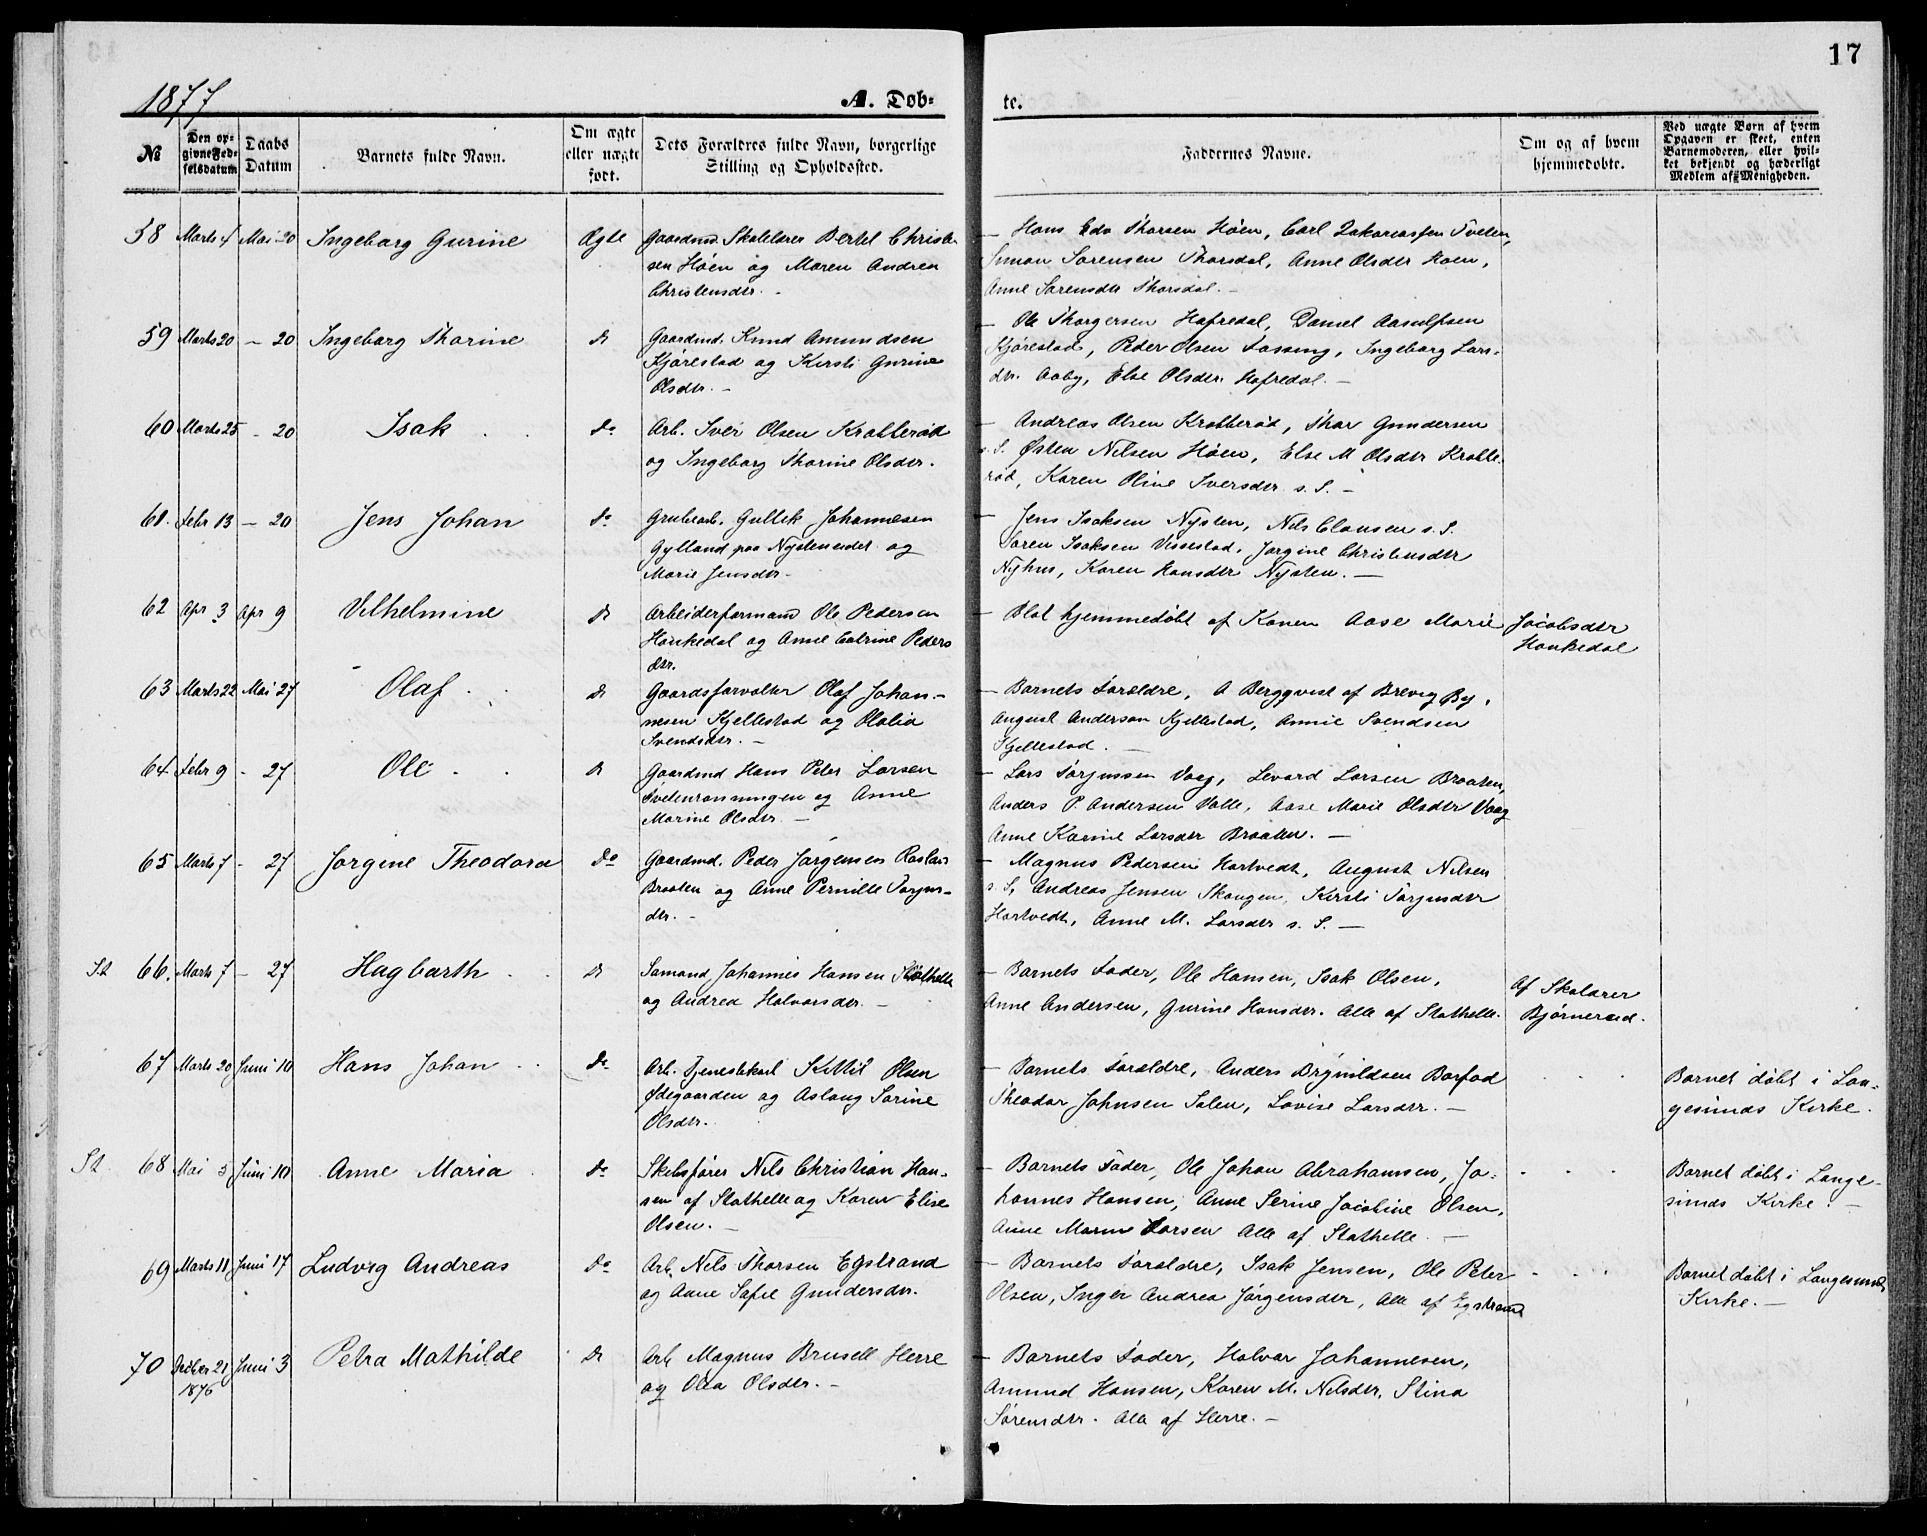 17
1877
A. Døb-
te.
№
Den op-
givne Fød-
selsdatum
Daabs
Datum
Barnets fulde Navn.
Om ægte
eller uægte
født.
Dets Forældres fulde Navn, borgerlige
Stilling og Opholdssted.
Faddernes Navne.
Om og af hvem
hjemmedøbte.
Ved uægte Børn af hvem
Opgaven er skeet, enten
Barnemoderen, eller hvil-
ket bekjendt og hæderligt
Medlem af Menigheden.
58 Marts 4 Mai 20 Ingeborg Gurine Ægte Gaardmd Skolelærer Bertel Christen-
sen Höen og Maren Andrea
Christensdtr. -
- Hans Edv Thorsen Höen, Carl Zakariassen Tveten,
Simon Sörensen Thorsdal, Anne Olsdtr Höen,
Anne Sörensdtr Thorsdal. -
59 Marts 20 - 20 Ingeborg Thorine do Gaardmd. Knud Amundsen
Kjörestad og Kirsti Gurine
Olsdtr. -
- Ole Thorgersen Hafredal, Daniel Aasulfsen
Kjörestad, Peder Olsen Fossing, Ingeborg Lars-
dtr. Aaby, Else Olsdtr. Hafredal. -
60 Marts 25 - 20 Isak do Arb. Iver Olsen Krabberöd
og Ingeborg Thorine Olsdtr.
- Andreas Olsen Krabberöd, Thor Gundersen
s. S. Østen Nilsen Höen, Else M Olsdtr Krabbe-
röd, Karen Oline Iversdtr s. S. -
61. Febr 13 - 20 Jens Johan do Grubearb. Gullik Johannesen
Gylland paa Nysteneidet og
Marie Jensdtr.
- Jens Isaksen Nysten, Nils Clausen s. S.
Sören Isaksen Vissestad, Jörgine Christensdtr
Nyhus, Karen Hansdtr Nysten. -
62 Apr 3 Apr 9 Vilhelmine do Arbeiderformand Ole Pedersen
Haukedal og Anne Catrine Peders
dtr.
- Blot hjemmedöbt af Konen Aase Marie Jacobsdtr
Haukedal
63 Marts 22 Mai 27 Olaf do Gaardsforvalter Olaf Johan-
nesen Kjellestad og Olalia
Svendsdtr. -
- Barnets Forældre, A Bergqvist af Brevig By,
August Anderson Kjellestad, Annie Svendsen
Kjellestad. -
64 Febr 9 - 27 Ole do Gaardmd Hans Peter Larsen
Tvetenrönningen og Anne
Marine Olsdtr. -
- Lars Torjussen Vaag, Levard Larsen Braaten,
Anders P. Andersen Valle, Aase Marie Olsdtr Vaag
Anne Karine Larsdtr Braaten. -
65 Marts 7 - 27 Jörgine Theodora do Gaardmd. Peder Jörgensen
Braaten og Anne Pernille Torjus-
dtr. -
- Magnus Pedersen Hartvedt, August Nilsen
s. S, Andreas Jensen Skougen, Kirsti Torjusdtr
Hartvedt, Anne M. Larsdtr s. S. -
St 66. Marts 7 - 27 Hagbarth do Sömand Johannes Hansen Stathelle
og Andrea Halvorsdtr. -
- Barnets Fader, Ole Hansen, Isak Olsen,
Anne Andersen, Gurine Hansdtr. Alle af Stathelle.
Af Skolærer
Björnerud.
67 Marts 20 Juni 10 Hans Johan do Arb. Tjenestekarl Kittil Olsen
Ødegaarden og Aslaug Sörine
Olsdtr.
- Barnets Forældre, Anders Brynildsen Barfod
Theodor Johnsen Salen, Lovise Larsdtr. -
Barnet döbt i Lan-
gesunds Kirke.
St 68 Mai 5 Juni 10 Anne Maria do Skibsförer Nils Christian Han-
sen af Stathelle og Karen Elise
Olsen. -
- Barnets Fader, Ole Johan Abrahamsen, Jo-
hannes Hansen, Anne Serine Jacobine Olsen,
Anne Marie Larsen Alle af Stathelle. -
Barnet döbt i Lange-
sunds Kirke. -
69 Marts 11 Juni 17 Ludvig Andreas do Arb. Nils Thorsen Egstrand
og Anne Sofie Gundersdtr.
- Barnets Forældre, Isak Jensen, Ole Peter
Olsen, Inger Andrea Jörgensdtr, Alle af Egstrand
Barnet döbt i Langesunds
Kirke. -
70 21 Juni 3 Petra Mathilde do Arb Magnus Brusell Herre
1876
og Olea Olsdtr. -
- Barnets Fader, Halvor Johannesen,
Amund Hansen, Karen M. Nilsdtr, Stina
Sörensdtr. Alle af Herre. -